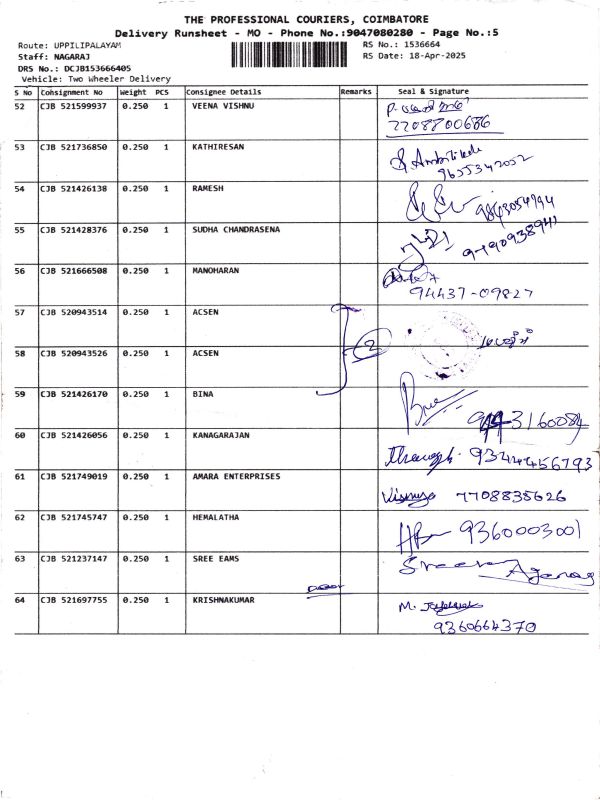 THE PROFESSIONAL COURIERS, COIMBATORE
Delivery Runsheet - MO - Phone No.:9047080280 - Page No.:5
Route: UPPILIPALAYAM RS No.: 1536664
Staff: NAGARAJ RS Date: 18-Apr-2025
DRS No.: DCJB153666405
Vehicle: Two Wheeler Delivery
S No Consignment No Weight PCS Consignee Details Remarks Seal & Signature
52 CJB 521599937 0.250 1 VEENA VISHNU
7708800686
53 CJB 521736850 0.250 1 KATHIRESAN
9655342052
54 CJB 521426138 0.250 1 RAMESH
9843054794
55 CJB 521428376 0.250 1 SUDHA CHANDRASENA
56 CJB 521666508 0.250 1 MANOHARAN
94437-09827
57 CJB 520943514 0.250 1 ACSEN
2
58 CJB 520943526 0.250 1 ACSEN
59 CJB 521426170 0.250 1 BINA
60 CJB 521426056 0.250 1 KANAGARAJAN
9344456793
61 CJB 521749019 0.250 1 AMARA ENTERPRISES
7708835626
62 CJB 521745747 0.250 1 HEMALATHA
9360003001
63 CJB 521237147 0.250 1 SREE EAMS
Door
64 CJB 521697755 0.250 1 KRISHNAKUMAR
9360664370